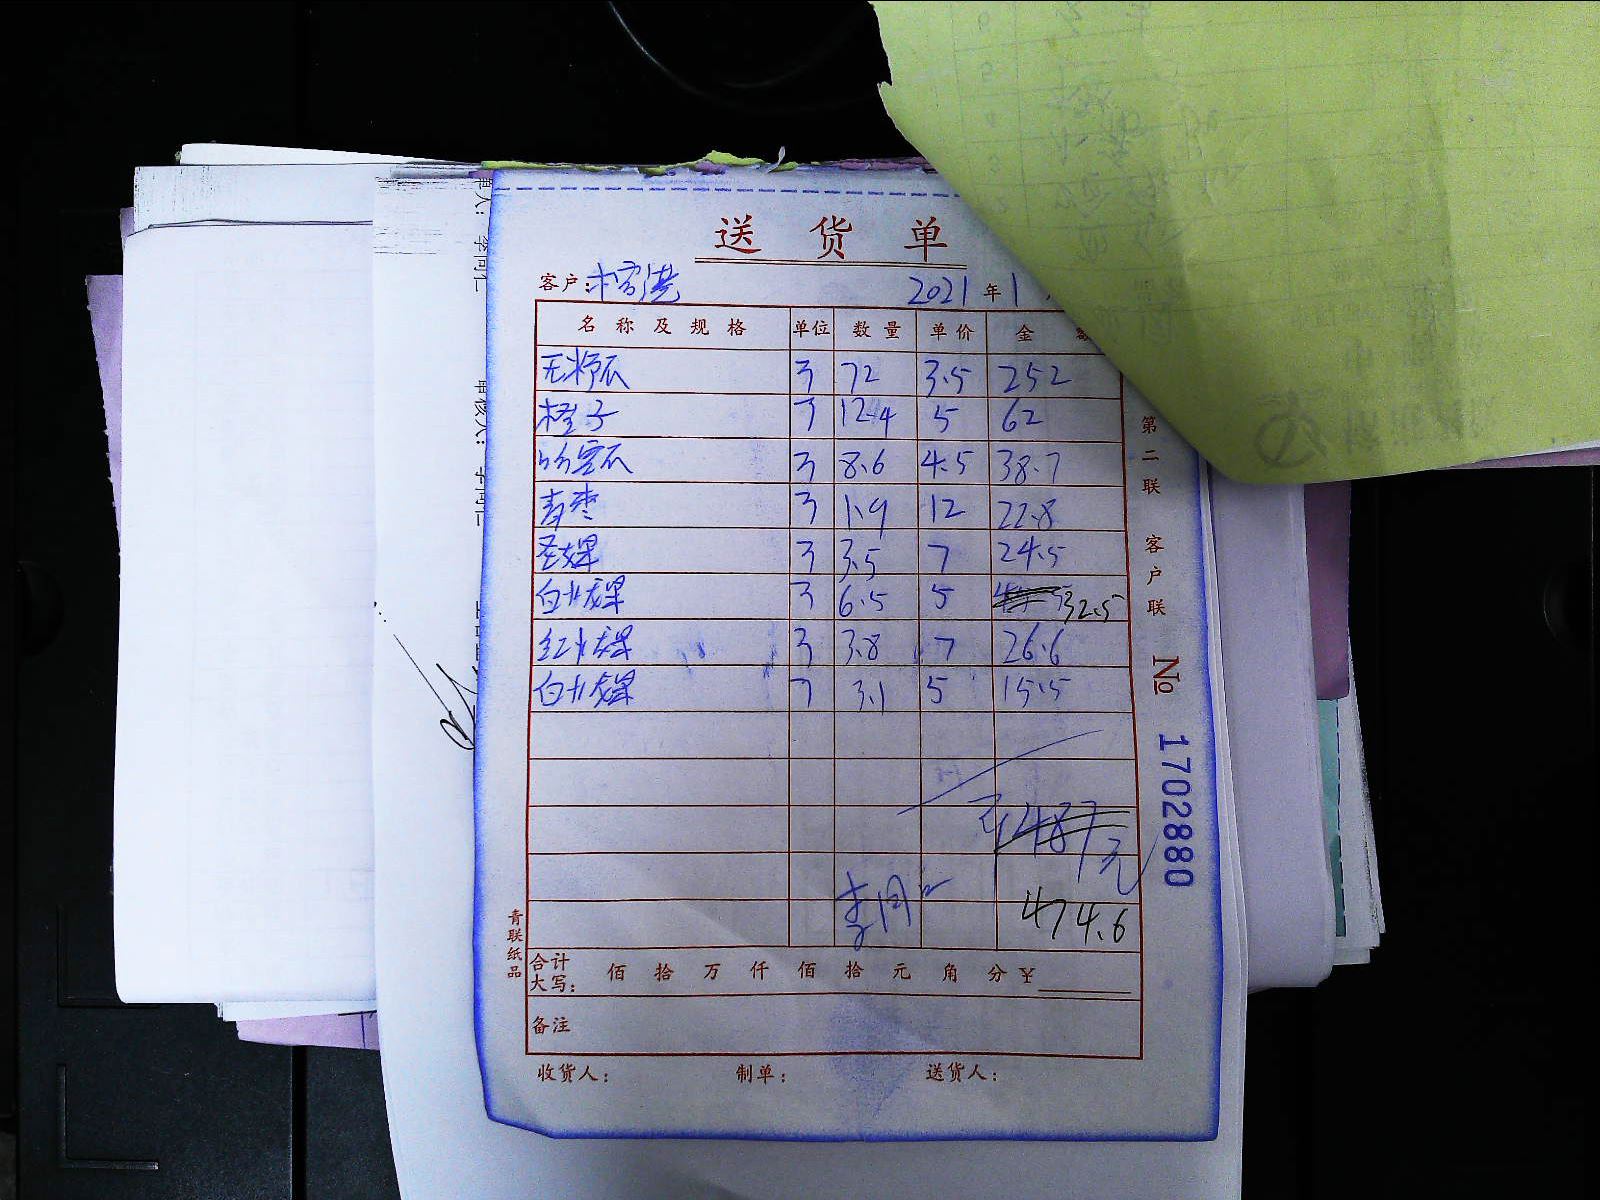 送货单
客户: 榕港 2021年1
名称及规格 单位 数量 单价 金
无籽瓜 3 72 3.5 252
橙子 3 12.4 5 62
哈密瓜 3 8.6 4.5 38.7
青枣 3 1.9 12 22.8
圣女果 3 3.5 7 24.5
白火龙果 3 6.5 5 32.5
红火龙果 3 3.8 7 26.6
白火龙果 3 3.1 5 15.5
487元
474.6
合计大写: 佰 拾 万 仟 佰 拾 元 角 分 ¥
备注
收货人: 制单: 送货人:
第二联 客户联
No 1702880
青联纸品
审核人: 李同仁